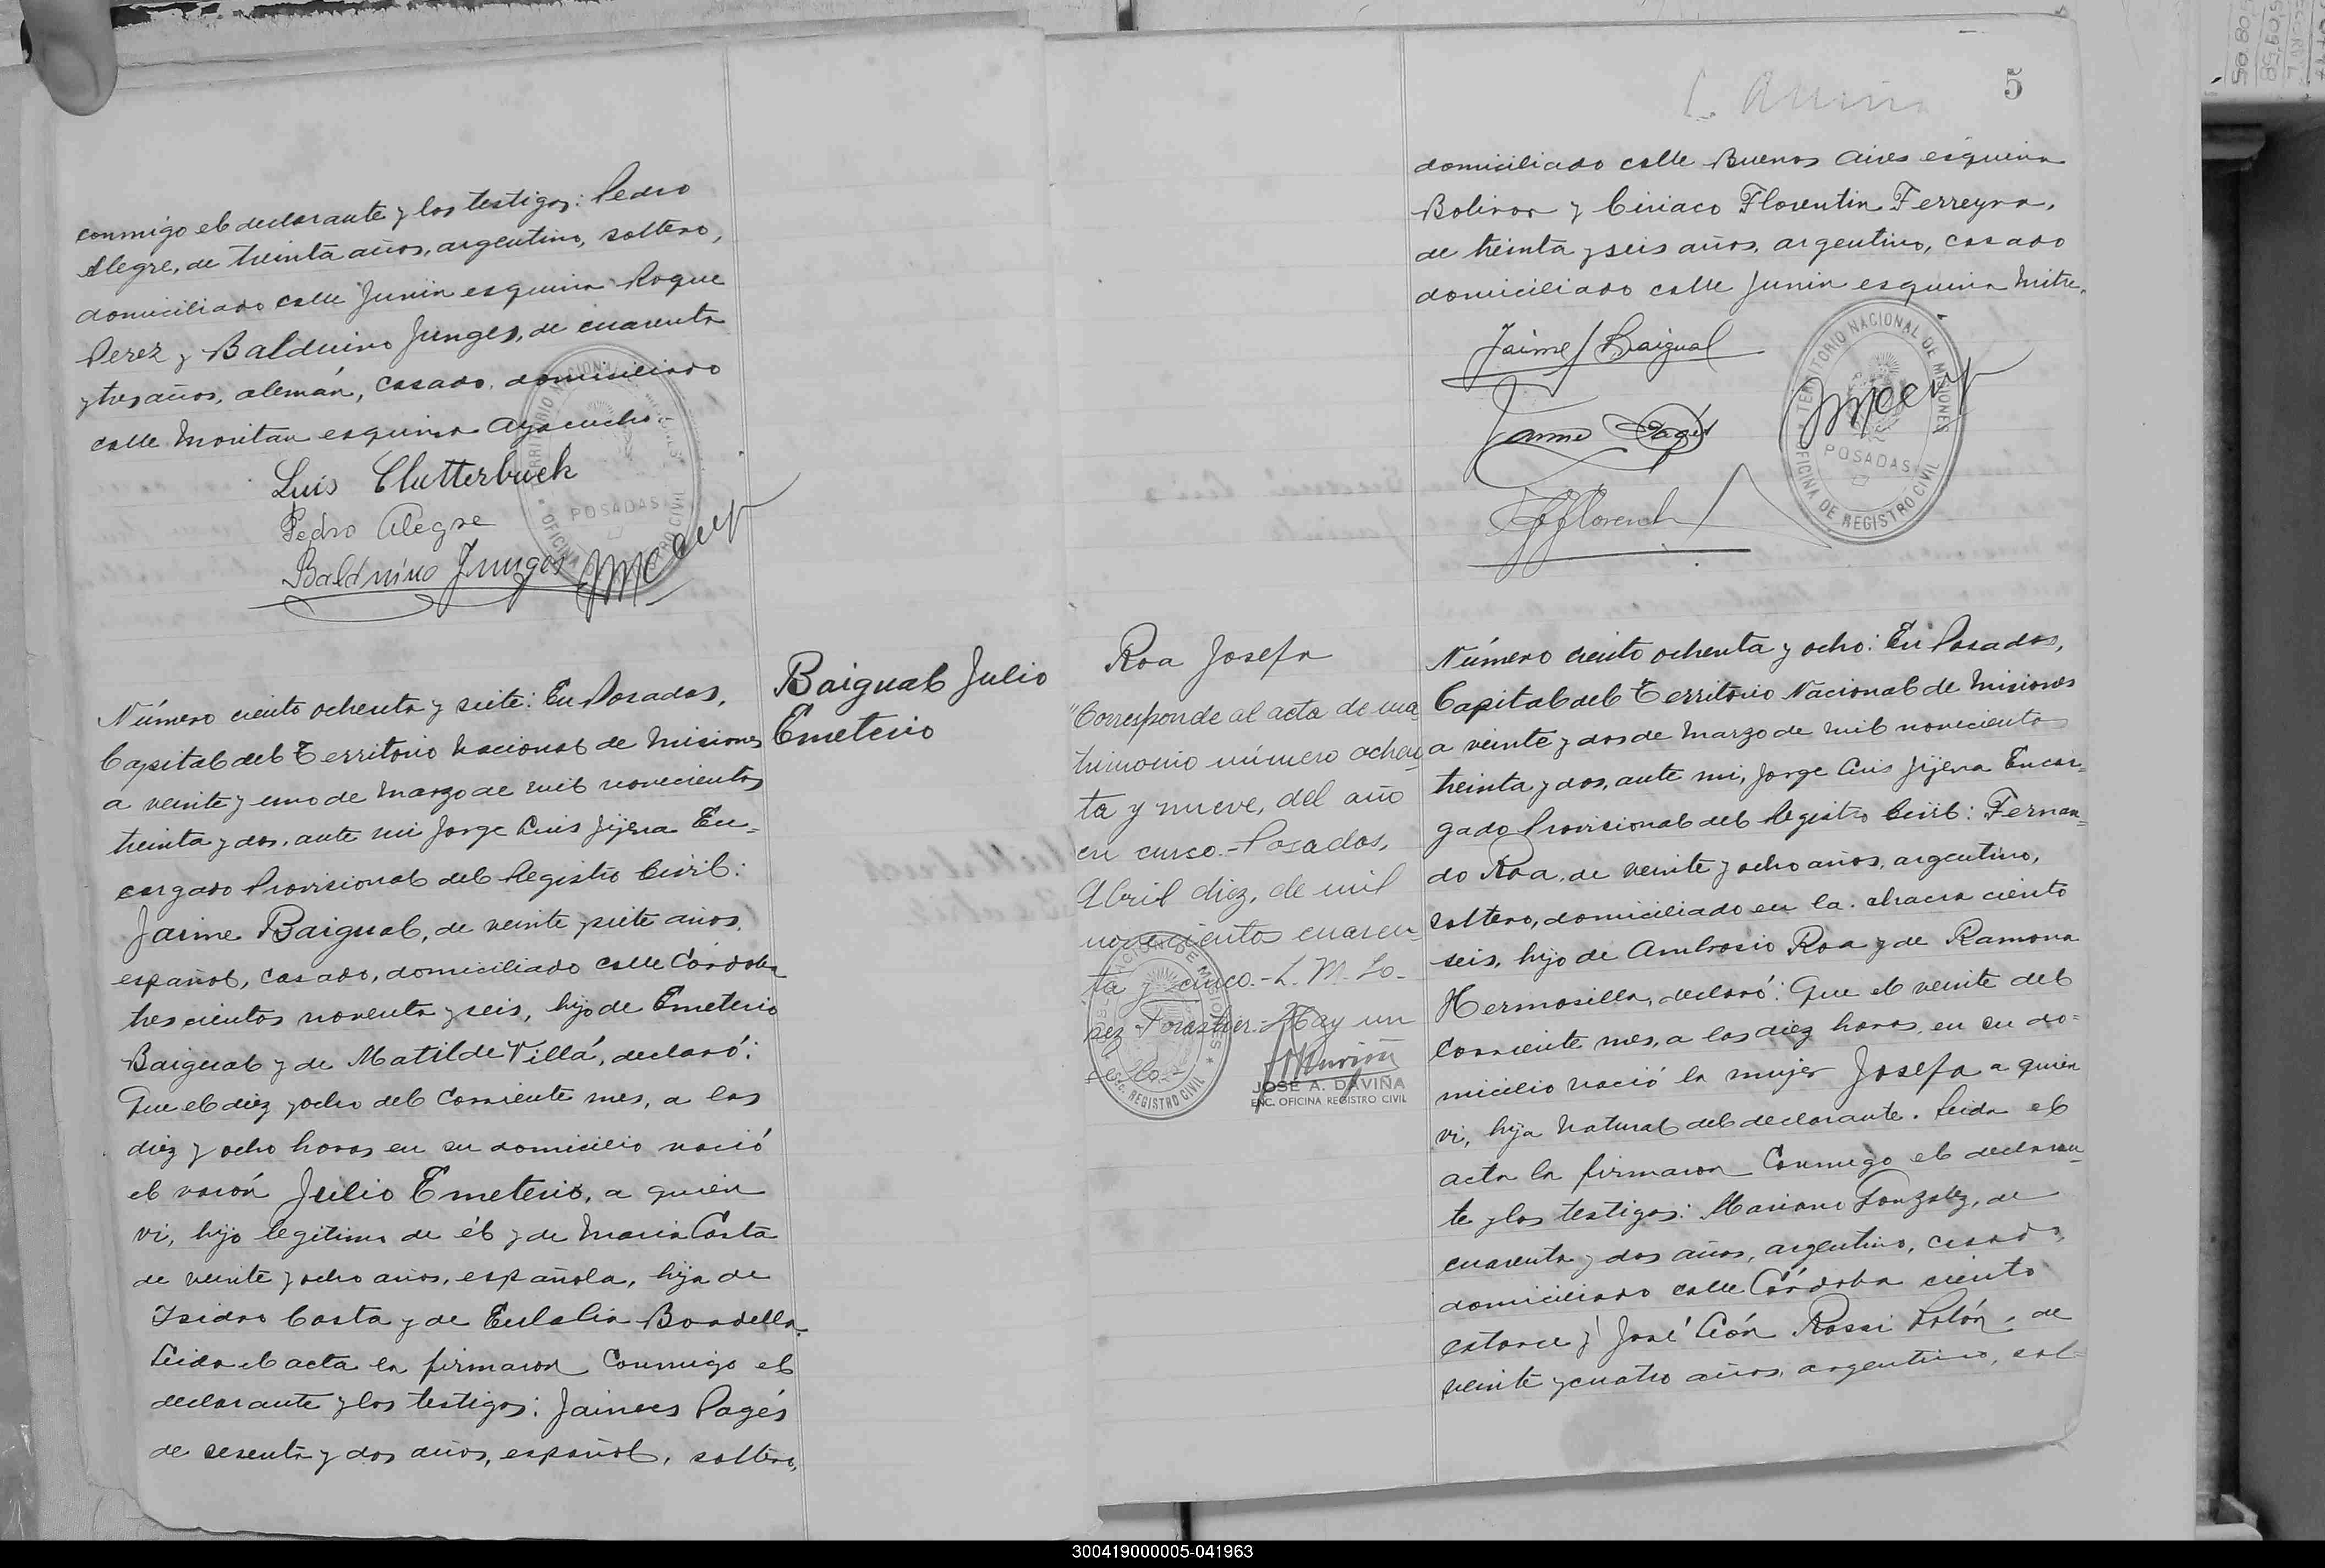 conmigo el declarante y los testigos: Pedro
Alegre, de treinta años, argentino, soltero,
domiciliado calle Junin esquina Roque
Perez y Balduino Junges, de cuarenta
y tres años, alemán, casado, domiciliado
calle esquina Ayacucho.
Luis Clutterbuck
Pedro Alegre
Balduino Junges
TERRITORIO NACIONAL DE MISIONES
POSADAS
OFICINA DE REGISTRO CIVIL
Número ciento ochenta y siete: En Posadas,
Capital del Territorio Nacional de Misiones
a veinte y uno de Marzo de mil novecientos
treinta y dos, ante mi Jorge Luis Jijena En-
cargado Provisional del Registro Civil:
Jaime Baigual, de veinte y siete años,
español, casado, domiciliado calle Córdoba
trescientos noventa y seis, hijo de Emeterio
Baigual y de Matilde Villá, declaró:
Que el diez y ocho del corriente mes, a las
diez y ocho horas en su domicilio nació
el varón Julio Emeterio, a quien
vi, hijo legitimo de él y de Maria Costa
de veinte y ocho años, española, hija de
Isidro Costa y de Eulalia Bordella.
Leida el acta la firmaron conmigo el
declarante y los testigos: Pagés
de sesenta y dos años, español, soltero,
Baigual Julio
Emeterio
5
domiciliado calle Buenos Aires esquina
Bolivar y Ciriaco Florentin Ferreyra,
de treinta y seis años, argentino, casado
domiciliado calle Junin esquina Mitre.
Jaime Baigual
Jaime Pagés
TERRITORIO NACIONAL DE MISIONES
POSADAS
OFICINA DE REGISTRO CIVIL
Roa Josefa
"Corresponde al acta de ma-
trimonio número ochen-
ta y nueve, del año
en curso.- Posadas,
Abril diez, de mil
novecientos cuaren-
ta y cinco.- L. M. Lo-
pez Forastier.- Hay un
sello.-
JOSÉ A. DAVIÑA
ENC. OFICINA REGISTRO CIVIL
Número ciento ochenta y ocho: En Posadas,
Capital del Territorio Nacional de Misiones
a veinte y dos de Marzo de mil novecientos
treinta y dos, ante mi, Jorge Luis Jijena Encar-
gado Provisional del Registro Civil: Fernan-
do Roa, de veinte y ocho años, argentino,
soltero, domiciliado en la chacra ciento
seis, hijo de Ambrosio Roa y de Ramona
Hermosilla, declaró: Que el veinte del
corriente mes, a las diez horas, en su do-
micilio nació la mujer Josefa a quien
vi, hija natural del declarante. Leida el
acta la firmaron conmigo el declaran-
te y los testigos: Mariano Gonzalez, de
cuarenta y dos años, argentino, casado,
domiciliado calle Córdoba ciento
catorce y José León Rossi Lolón, de
veinte y cuatro años, argentino, sol-
300419000005-041963